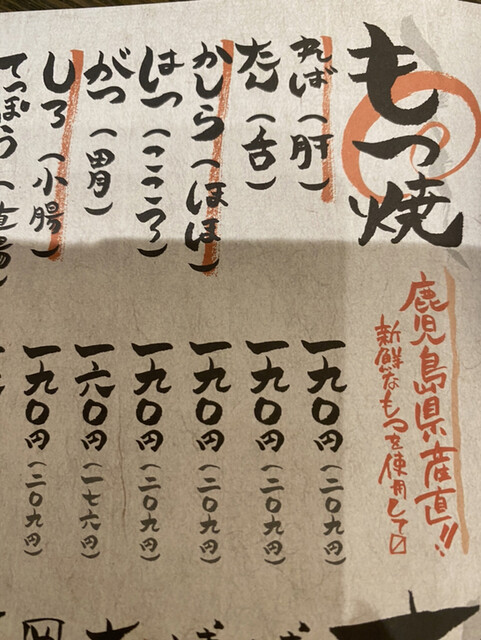 もつ焼
鹿児島県産直!!
新鮮なもつを使用して〼
れば（肝） 一九〇円（二〇九円）
たん（舌） 一九〇円（二〇九円）
かしら（ほほ） 一九〇円（二〇九円）
はつ（こころ） 一九〇円（二〇九円）
がつ（胃） 一六〇円（一七六円）
しろ（小腸） 一九〇円（二〇九円）
てっぽう（直腸）